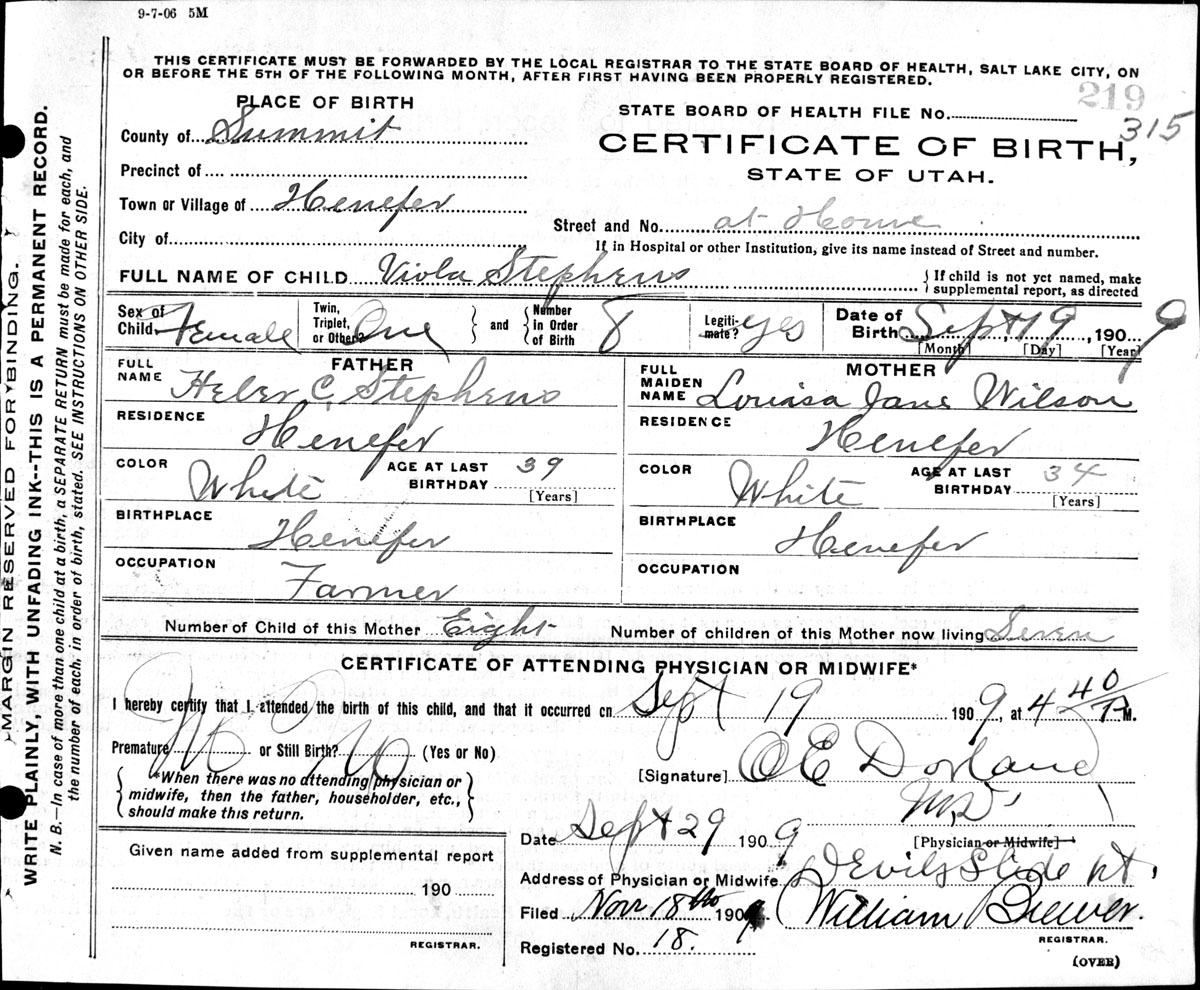 9-7-06 5M
THIS CERTIFICATE MUST BE FORWARDED BY THE LOCAL REGISTRAR TO THE STATE BOARD OF HEALTH, SALT LAKE CITY, ON
OR BEFORE THE 5TH OF THE FOLLOWING MONTH, AFTER FIRST HAVING BEEN PROPERLY REGISTERED.
219
PLACE OF BIRTH
STATE BOARD OF HEALTH FILE No.
315
County of Summit
CERTIFICATE OF BIRTH,
Precinct of
STATE OF UTAH.
Town or Village of Henefer
Street and No. at Home
City of
If in Hospital or other Institution, give its name instead of Street and number.
FULL NAME OF CHILD Viola Stephens
If child is not yet named, make
supplemental report, as directed
Sex of Child Female
Twin, Triplet, or Other? One
and
Number in Order of Birth 8
Legitimate? yes
Date of Birth Sept 19, 1909
[Month] [Day] [Year]
FATHER
FULL NAME Heber C. Stephens
RESIDENCE Henefer
COLOR White
AGE AT LAST BIRTHDAY 39
[Years]
BIRTHPLACE Henefer
OCCUPATION Farmer
MOTHER
FULL MAIDEN NAME Louisa Jane Wilson
RESIDENCE Henefer
COLOR White
AGE AT LAST BIRTHDAY 34
[Years]
BIRTHPLACE Henefer
OCCUPATION
Number of Child of this Mother Eight Number of children of this Mother now living Seven
CERTIFICATE OF ATTENDING PHYSICIAN OR MIDWIFE*
I hereby certify that I attended the birth of this child, and that it occurred on Sept 19 1909, at 4 40 P M.
Premature No or Still Birth? No (Yes or No)
*When there was no attending physician or
midwife, then the father, householder, etc.,
should make this return.
[Signature] O E Dorland
M.D.
[Physician or Midwife]
Date Sept 29 1909
Address of Physician or Midwife Devils Slide Ut.
Filed Nov 18th 1909 William Brewer.
REGISTRAR.
Registered No. 18.
(OVER)
Given name added from supplemental report
190
REGISTRAR.
MARGIN RESERVED FOR BINDING.
WRITE PLAINLY, WITH UNFADING INK--THIS IS A PERMANENT RECORD.
N. B.—In case of more than one child at a birth, a SEPARATE RETURN must be made for each, and
the number of each, in order of birth, stated. SEE INSTRUCTIONS ON OTHER SIDE.